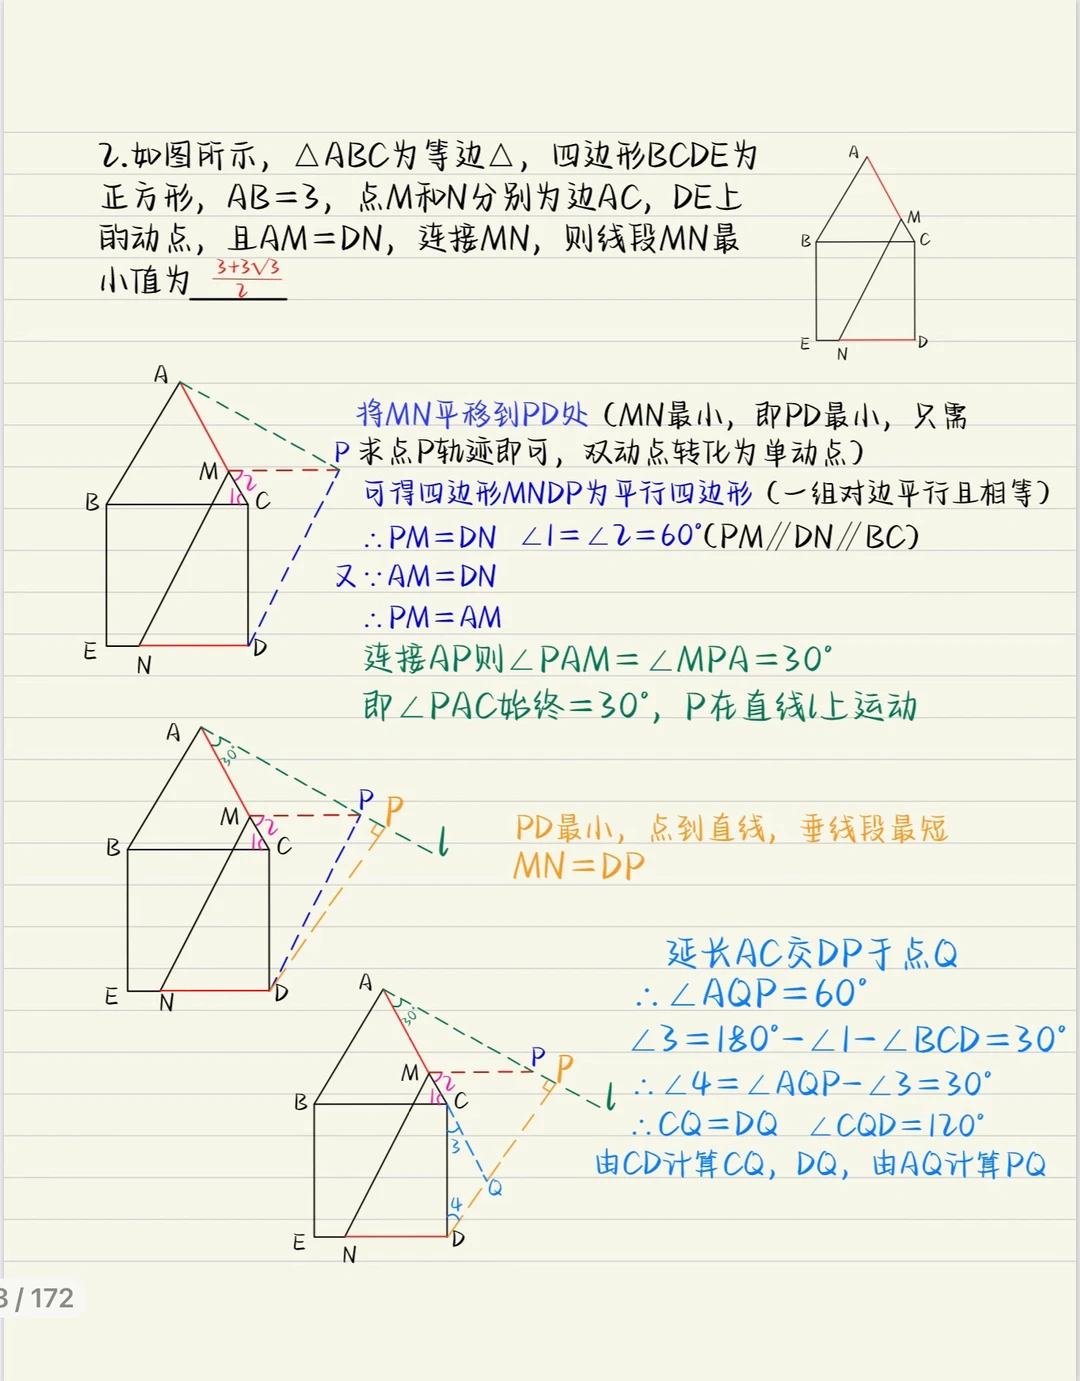 2.如图所示，△ABC为等边△，四边形BCDE为
正方形，AB=3，点M和N分别为边AC，DE上
的动点，且AM=DN，连接MN，则线段MN最
小值为 (3+3√3)/2
A
M
B
C
E
N
D
A
将MN平移到PD处（MN最小，即PD最小，只需
P 求点P轨迹即可，双动点转化为单动点）
M
2
1
B
C
可得四边形MNDP为平行四边形（一组对边平行且相等）
∴PM=DN ∠1=∠2=60°(PM∥DN∥BC)
又∵AM=DN
∴PM=AM
E
N
D
连接AP则∠PAM=∠MPA=30°
即∠PAC始终=30°，P在直线l上运动
A
30°
M
2
1
P
P
B
C
l
PD最小，点到直线，垂线段最短
MN=DP
E
N
D
延长AC交DP于点Q
∴∠AQP=60°
∠3=180°-∠1-∠BCD=30°
∴∠4=∠AQP-∠3=30°
∴CQ=DQ ∠CQD=120°
由CD计算CQ，DQ，由AQ计算PQ
A
30°
M
2
1
P
P
B
C
l
3
Q
4
E
N
D
3/172